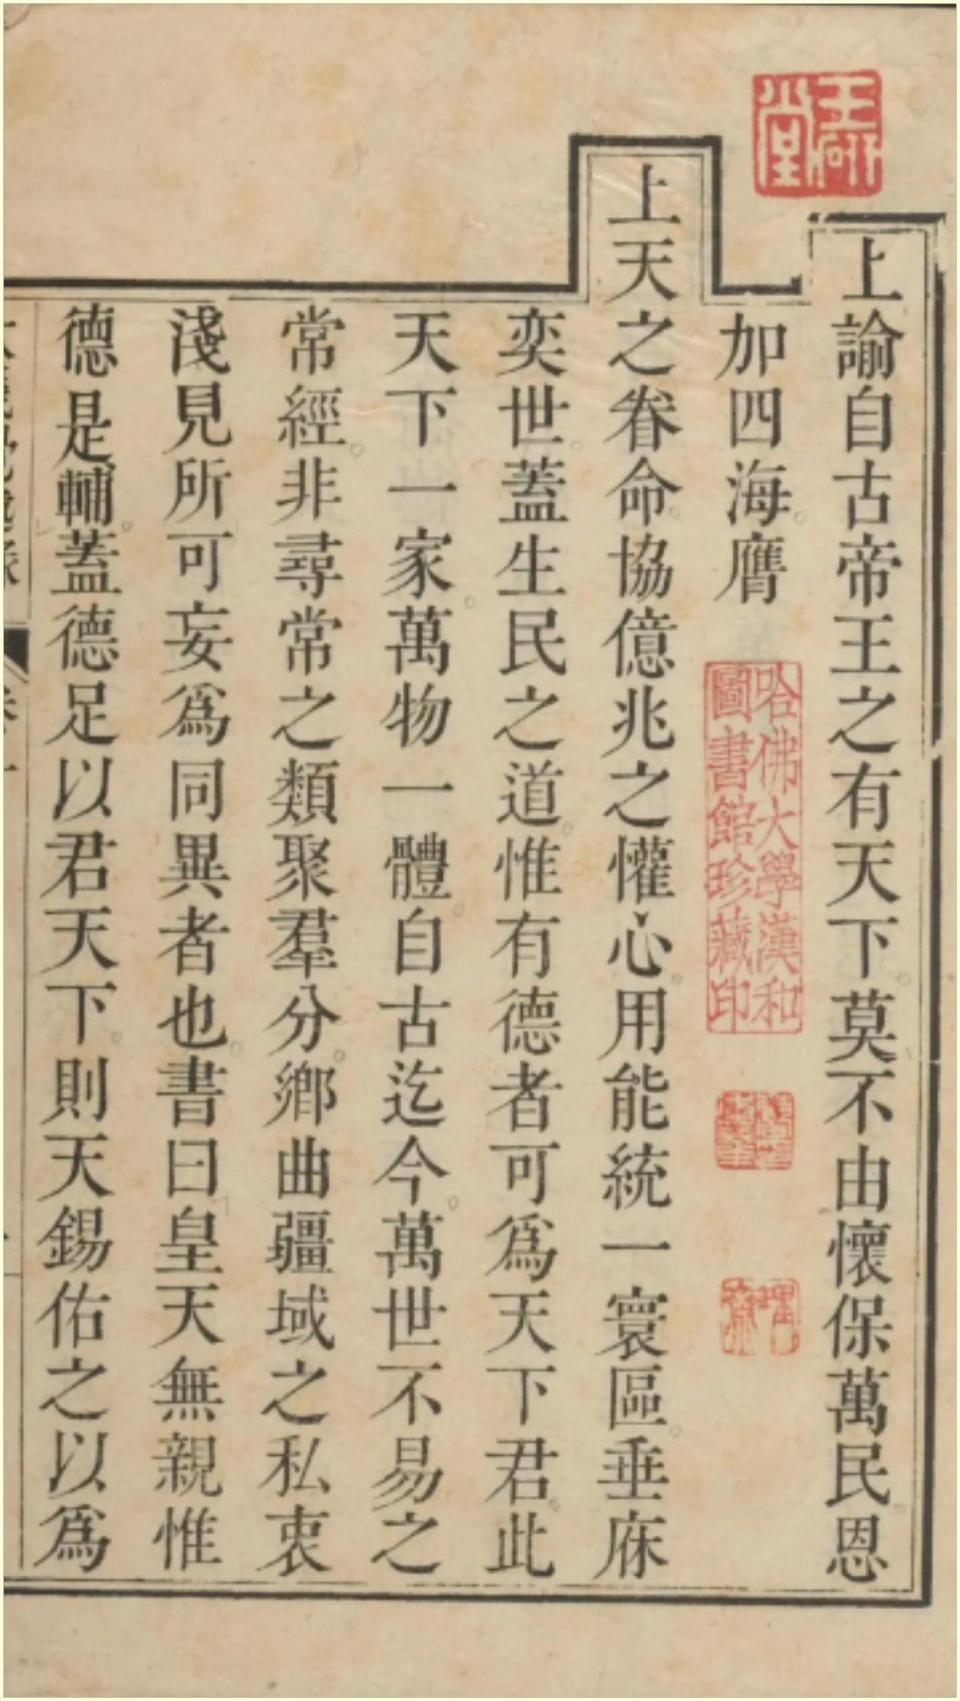 上諭自古帝王之有天下莫不由懷保萬民恩
加四海膺
上天之眷命協億兆之懽心用能統一寰區垂庥
奕世蓋生民之道惟有德者可為天下君此
天下一家萬物一體自古迄今萬世不易之
常經非尋常之類聚羣分鄉曲疆域之私衷
淺見所可妄為同異者也書曰皇天無親惟
德是輔蓋德足以君天下則天錫佑之以為
哈佛大學漢和
圖書館珍藏印